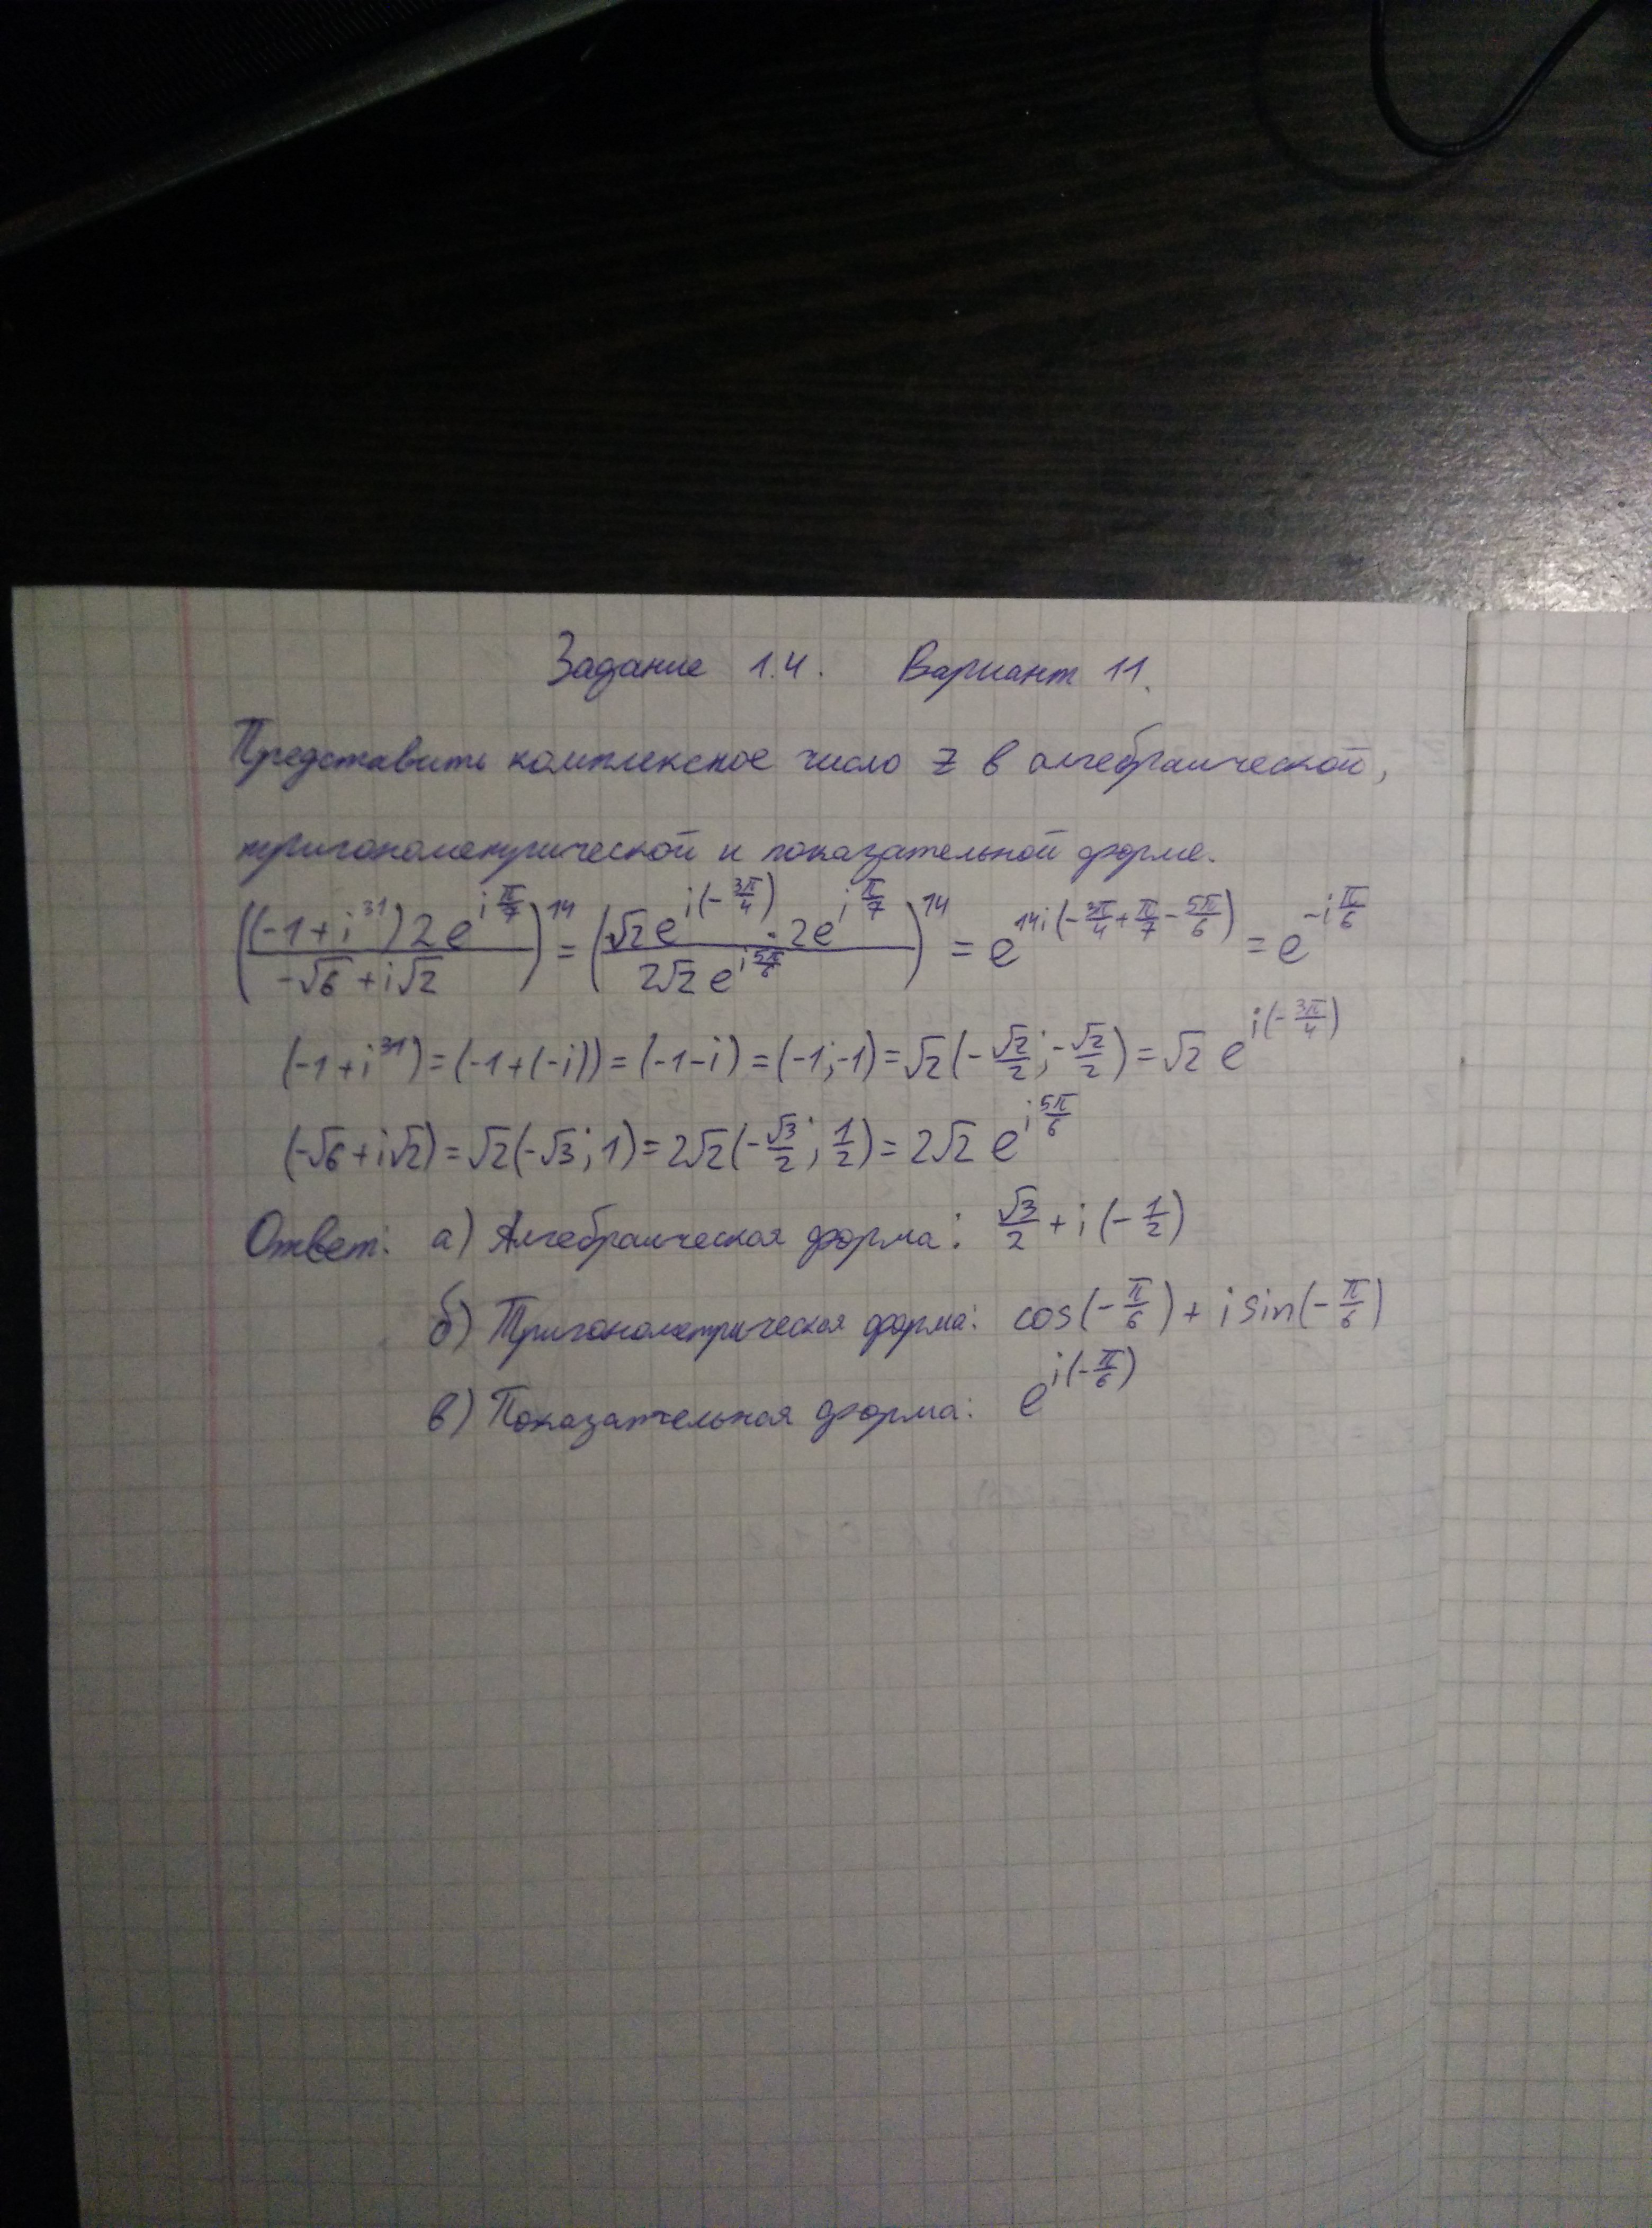 Задание 1.4. Вариант 11.
Представить комплексное число z в алгебраической,
тригонометрической и показательной форме.
((-1+i^31)2e^(iπ/7) / (-√6+i√2))^14 = (√2e^(i(-3π/4)) · 2e^(iπ/7) / (2√2e^(i5π/6)))^14 = e^(14i(-3π/4+π/7-5π/6)) = e^(-iπ/6)
(-1+i^31)=(-1+(-i))=(-1-i)=(-1;-1)=√2(-√2/2;-√2/2)=√2 e^(i(-3π/4))
(-√6+i√2)=√2(-√3;1)=2√2(-√3/2;1/2)=2√2 e^(i5π/6)
Ответ: а) Алгебраическая форма: √3/2+i(-1/2)
б) Тригонометрическая форма: cos(-π/6)+i sin(-π/6)
в) Показательная форма: e^(i(-π/6))